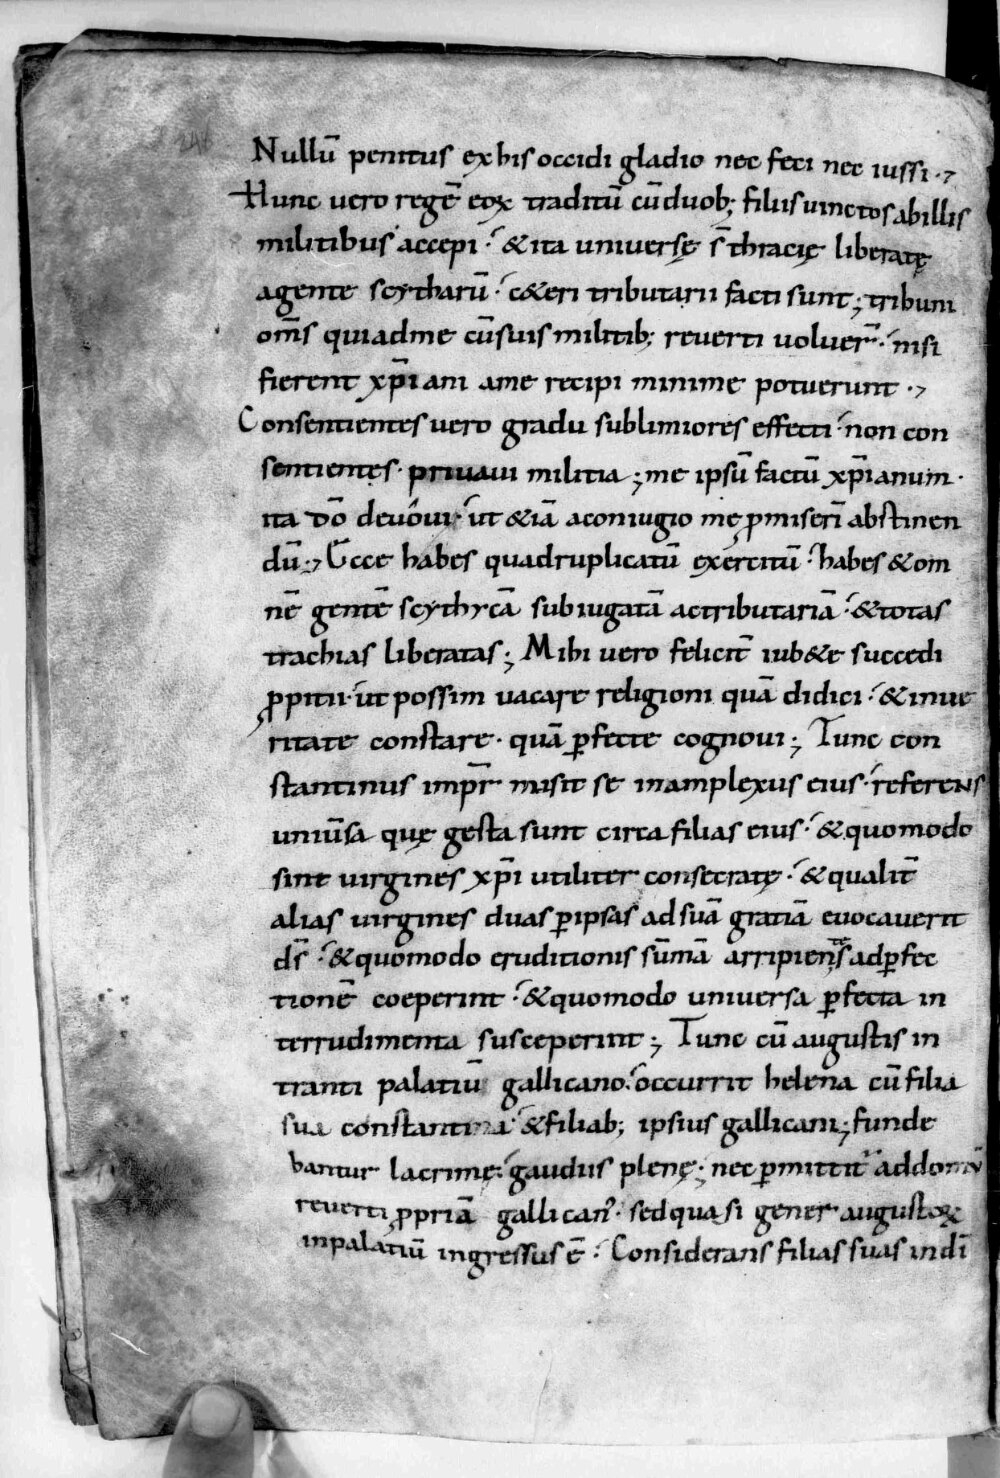 Nullū penitus ex his occidi gladio nec feci nec iussi.
Hunc vero regē eoꝝ traditū cū duob; filiis vinctos ab illis
militibus accepi. & ita universę s̄ thracię liberatę
a gente scytharū. c&eri tributarii facti sunt; tribuni
om̄s qui ad me cū suis militib; reverti voluer̄. nisi
fierent xp̄iani a me recipi minime potuerunt.
Consentientes vero gradu sublimiores effecti. non con
sentientes. privavi militia; me ipsū factū xp̄ianum.
ita dō devovi. ut &iā a coniugio me ꝓmiserī abstinen
dū. Ecce habes quadruplicatū exercitū. habes & om
nē gentē scythycā subiugatā ac tributariā. & totas
trachias liberatas; Mihi vero felicit̄ iub&e succedi
ꝓpitii. ut possim vacare religioni quā didici. & in ve
ritate constare. quā ꝑfecte cognovi; Tunc con
stantinus imp̄r misit se in amplexus eius. referens
univ̄sa quę gesta sunt circa filias eius. & quomodo
sint virgines xp̄i utiliter consecratę. & qualit̄
alias virgines duas ꝑ ipsas ad suā gratiā evocaverit
ds̄. & quomodo eruditionis sūmā arripientes ad ꝑfec
tionē coeperint. & quomodo universa ꝑfecta in
terrudimenta susceperint; Tunc cū augustis in
tranti palatiū gallicano. occurrit helena cū filia
sua constantina. & filiab; ipsius gallicani; funde
bantur lacrimę. gaudiis plenę. nec ꝑmittit̄ ad domū
reverti ꝓpriā gallican̄. sed quasi gener augustoꝝ
in palatiū ingressus ē. Considerans filias suas in dī